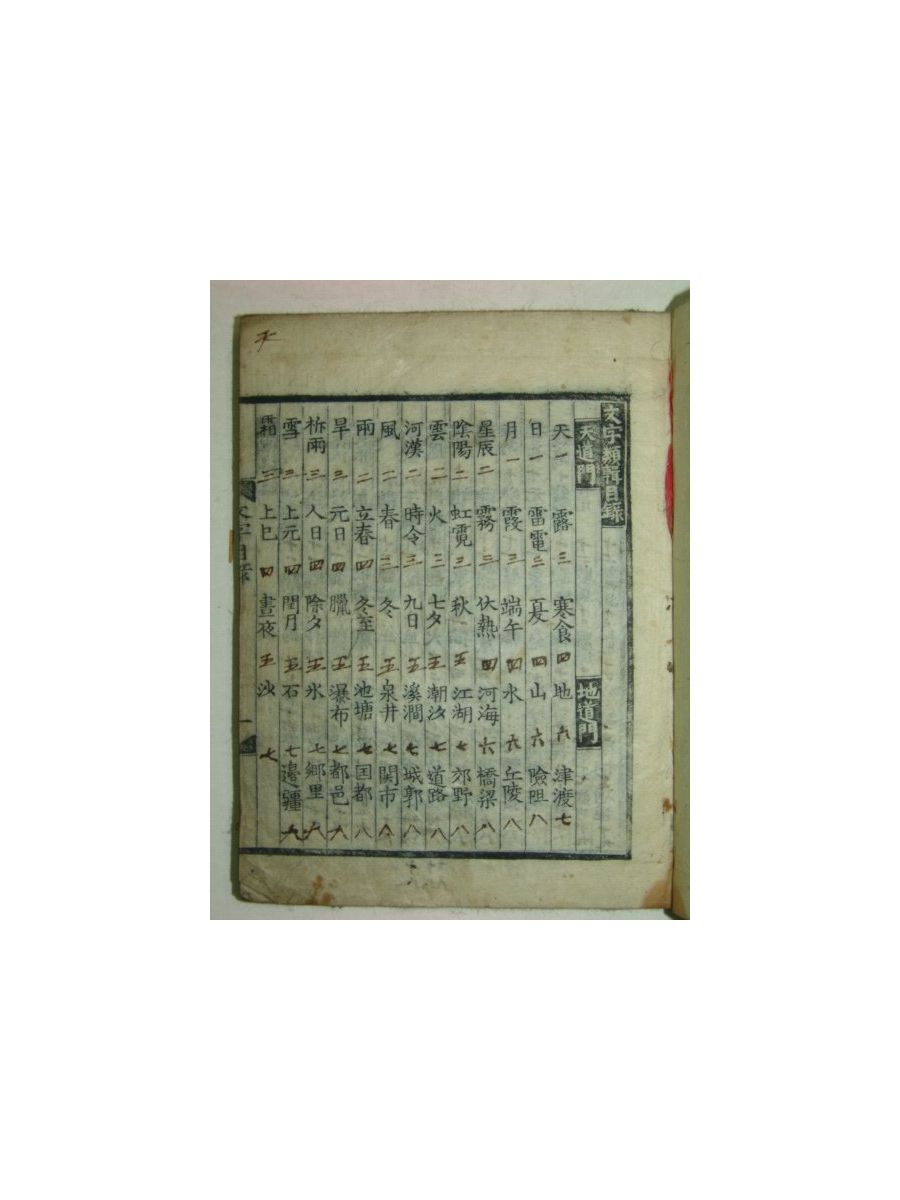 文字類輯目錄
天道門 地道門
天 一 露 三 寒食 四 地 六 津渡 七
日 一 雷電 三 夏 四 山 六 險阻 八
月 一 霞 三 端午 四 水 六 丘陵 八
星辰 二 霧 三 伏熱 四 河海 六 橋梁 八
陰陽 二 虹霓 三 秋 五 江湖 七 郊野 八
雲 二 火 三 七夕 五 潮汐 七 道路 八
河漢 二 時令 三 九日 五 溪澗 七 城郭 八
風 二 春 三 冬 五 泉井 七 関市 八
雨 二 立春 四 冬至 五 池塘 七 国都 八
旱 三 元日 四 臘 五 瀑布 七 都邑 八
祈雨 三 人日 四 除夕 五 氷 七 鄉里 六
雪 三 上元 四 閏月 五 石 七 邊疆 九
霜 三 上巳 四 晝夜 五 沙 七
文字目錄 一